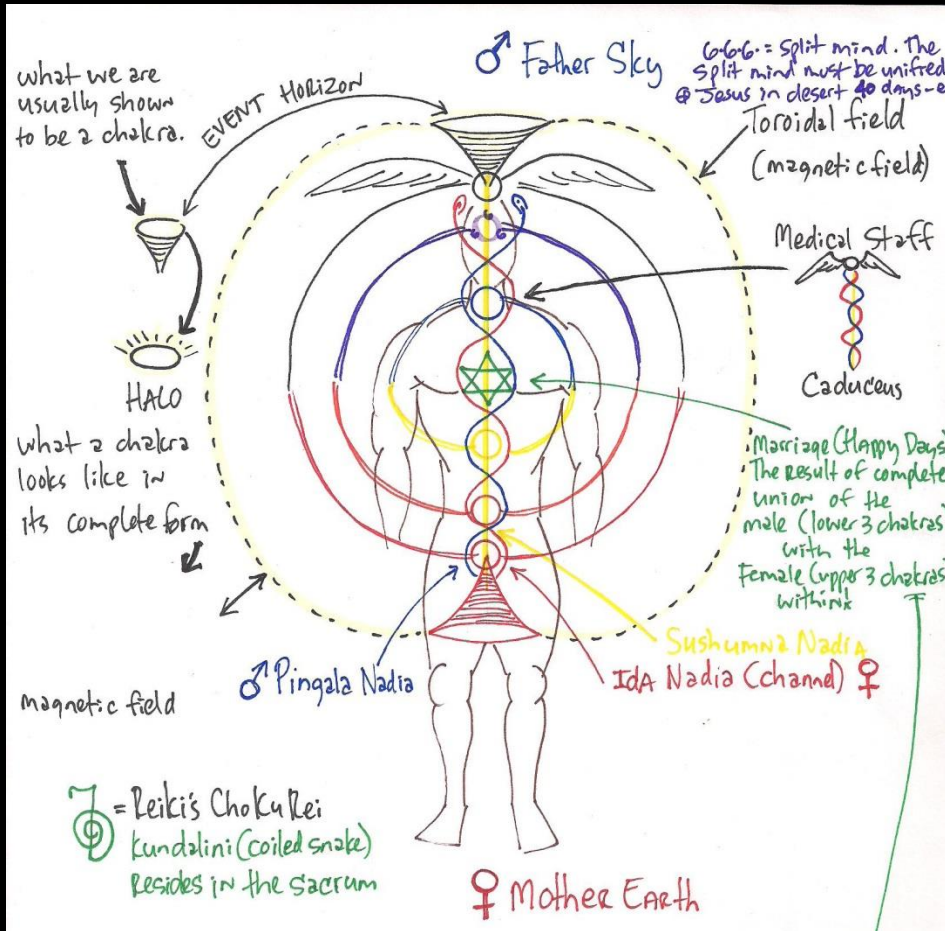 what we are
usually shown
to be a chakra.
EVENT HORIZON
♂ Father Sky
6-6-6- = split mind. The
split mind must be unified
@ Jesus in desert 40 days-e
Toroidal field
(magnetic field)
Medical Staff
Caduceus
HALO
what a chakra
looks like in
its complete form
Marriage (Happy Days)
The Result of complete
union of the
male (lower 3 chakras)
with the
Female (upper 3 chakras)
within!
Sushumna Nadia
♂ Pingala Nadia
Ida Nadia (channel) ♀
magnetic field
= Reiki's ChoKu Rei
Kundalini (coiled snake)
Resides in the sacrum
♀ Mother Earth